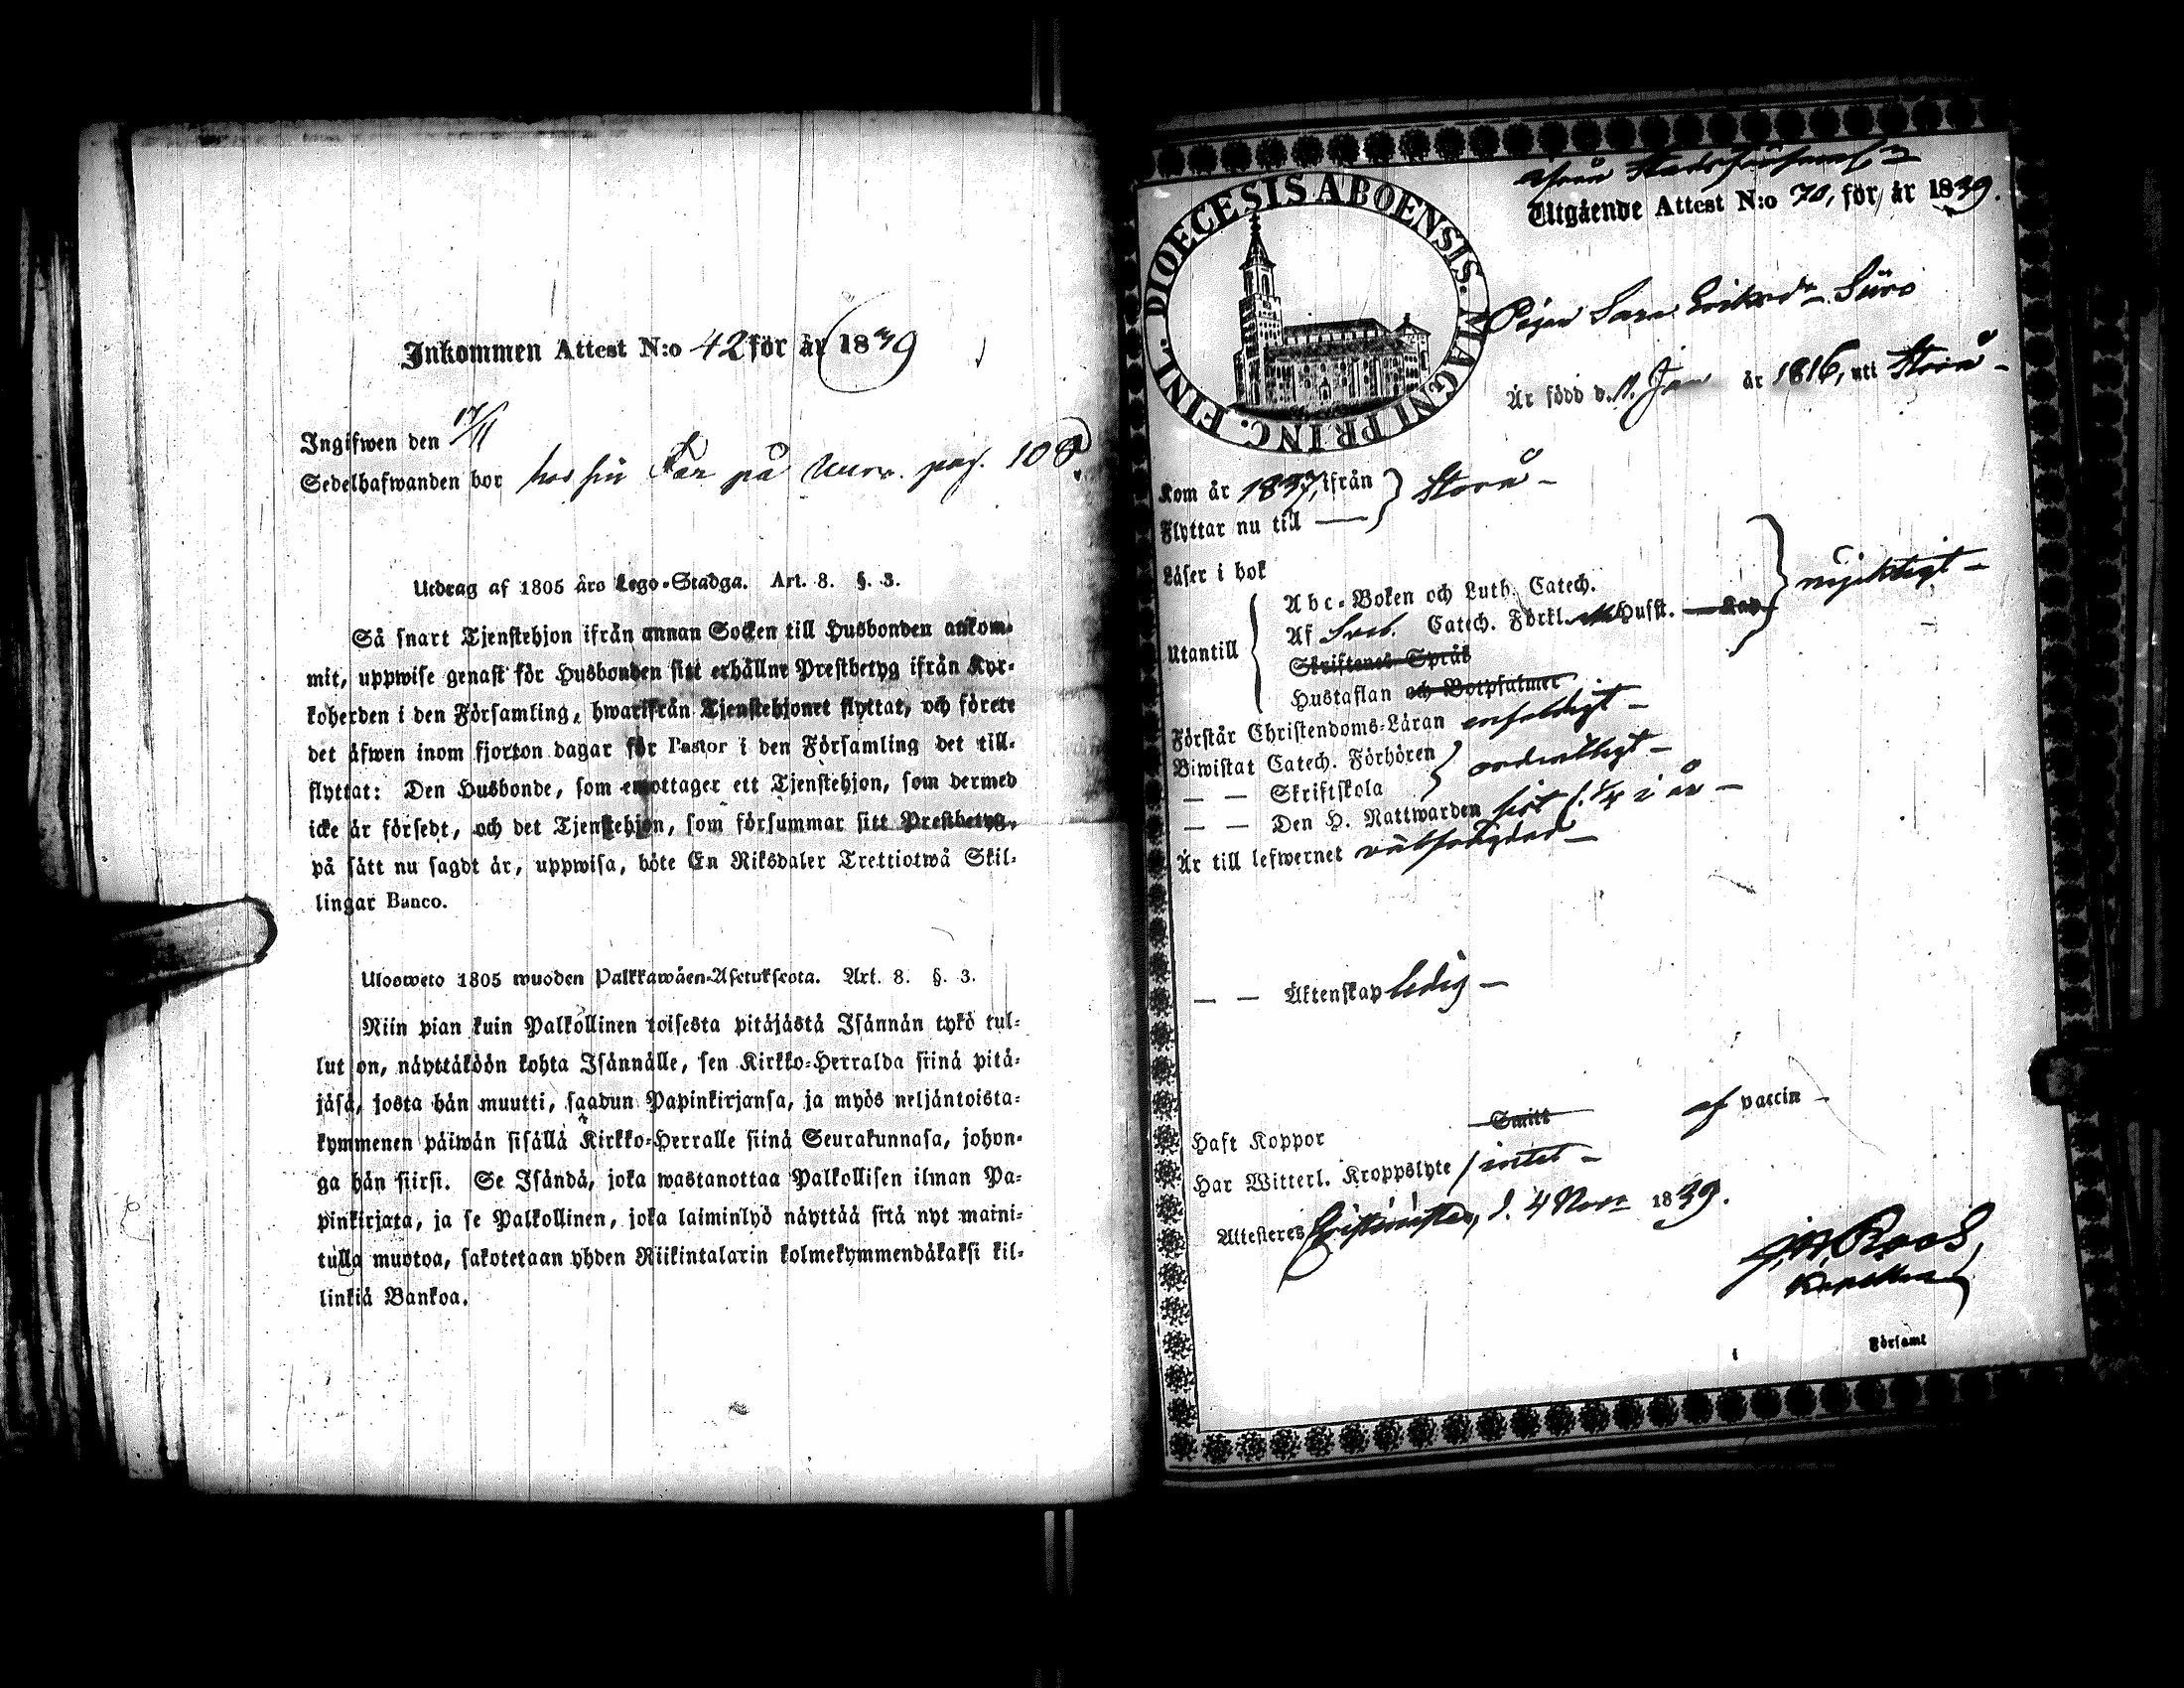 Inkommen Attest N:o 42 för år 1839
Ingifwen den 17/11
Sedelhafwanden bor hos sin Far på pag. 108
Utdrag af 1805 års Lego-Stadga. Art. 8. §. 3.
Så snart Tjenstehjon ifrån annan Socken till Husbonden ankom-
mit, uppwise genast för Husbonden sitt erhållne Prestbetyg ifrån Kyr-
koherden i den Församling, hwarifrån Tjenstehjonet flyttat, och förete
det äfwen inom fjorton dagar för Pastor i den Församling det till-
flyttat: Den Husbonde, som emottager ett Tjenstehjon, som dermed
icke är försedt, och det Tjenstehjon, som försummar sitt Prestbetyg,
på sätt nu sagdt är, uppwisa, böte En Riksdaler Trettiotwå Skil-
lingar Banco.
Ulosweto 1805 wuoden Palkkawäen-Asetuksesta. Art. 8. §. 3.
Niin pian kuin Palkollinen toisesta pitäjästä Isännän tykö tul-
lut on, näyttäköön kohta Isännälle, sen Kirkko-Herralda siinä pitä-
jäsä, josta hän muutti, saadun Papinkirjansa, ja myös neljäntoista-
kymmenen päiwän sisällä Kirkko-Herralle siinä Seurakunnasa, johon-
ga hän siirsi. Se Isändä, joka wastanottaa Palkollisen ilman Pa-
pinkirjata, ja se Palkollinen, joka laiminlyö näyttää sitä nyt maini-
tulla muotoa, sakotetaan yhden Riikintalarin kolmekymmendäkaksi kil-
linkiä Bankoa.
DIOECESIS ABOENSIS. MAGNI PRINC. FINL.
ifrån Stadsförsaml.
Utgående Attest N:o 70, för år 1839.
Pigan Sara Eriksdr Süro
Är född d. 11. Jan år 1816, uti Storå -
Kom år 1837, ifrån } Storå -
Flyttar nu till —
Läser i bok
Utantill
Abc-Boken och Luth. Catech.
Af Sveb. Catech. Förkl. Husst. Kap. } nöjaktigt -
Skriftenes Språk
Hustaflan och Botpsalmer
Förstår Christendoms-Läran enfaldigt -
Biwistat Catech. Förhören } ordentligt -
— — Skriftskola
— — Den H. Nattwarden sist i år -
Är till lefwernet välfrägdad -
— — Äktenskap ledig -
Haft Koppor Smitt af vaccin -
Har Witterl. Kroppslyte / intet -
Attesteres Christinestad, d. 4 Novr 1839.
J. W. Roos,
Kapellan
i Församl